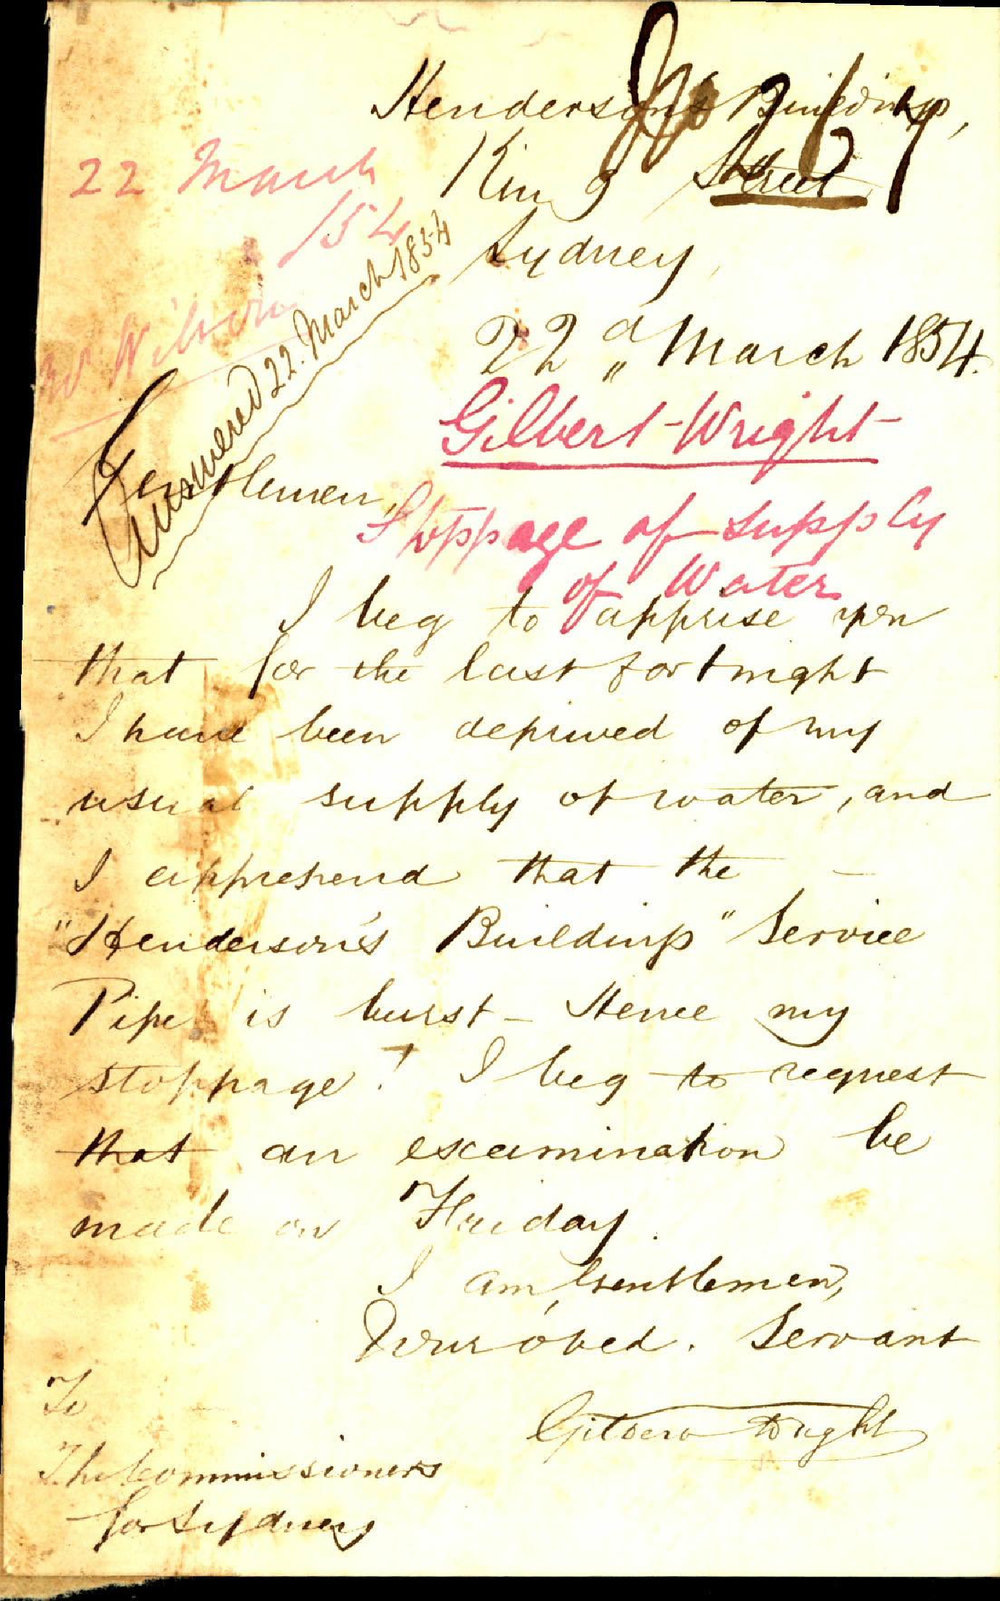 Henderson's Buildings,
King Street
Sydney,
22d March 1854.
22 March
/54
W Wilson
Answered 22. March 1854
Gilbert Wright
Stoppage of supply
of Water
Gentlemen,
I beg to apprise you
that for the last fortnight
I have been deprived of my
usual supply of water, and
I apprehend that the —
"Henderson's Buildings" Service
Pipe is burst – Hence my
stoppage! I beg to request
that an examination be
made on Friday.
I am, Gentlemen,
Your obed. Servant
Gilbert Wright
To
The Commissioners
for Sydney